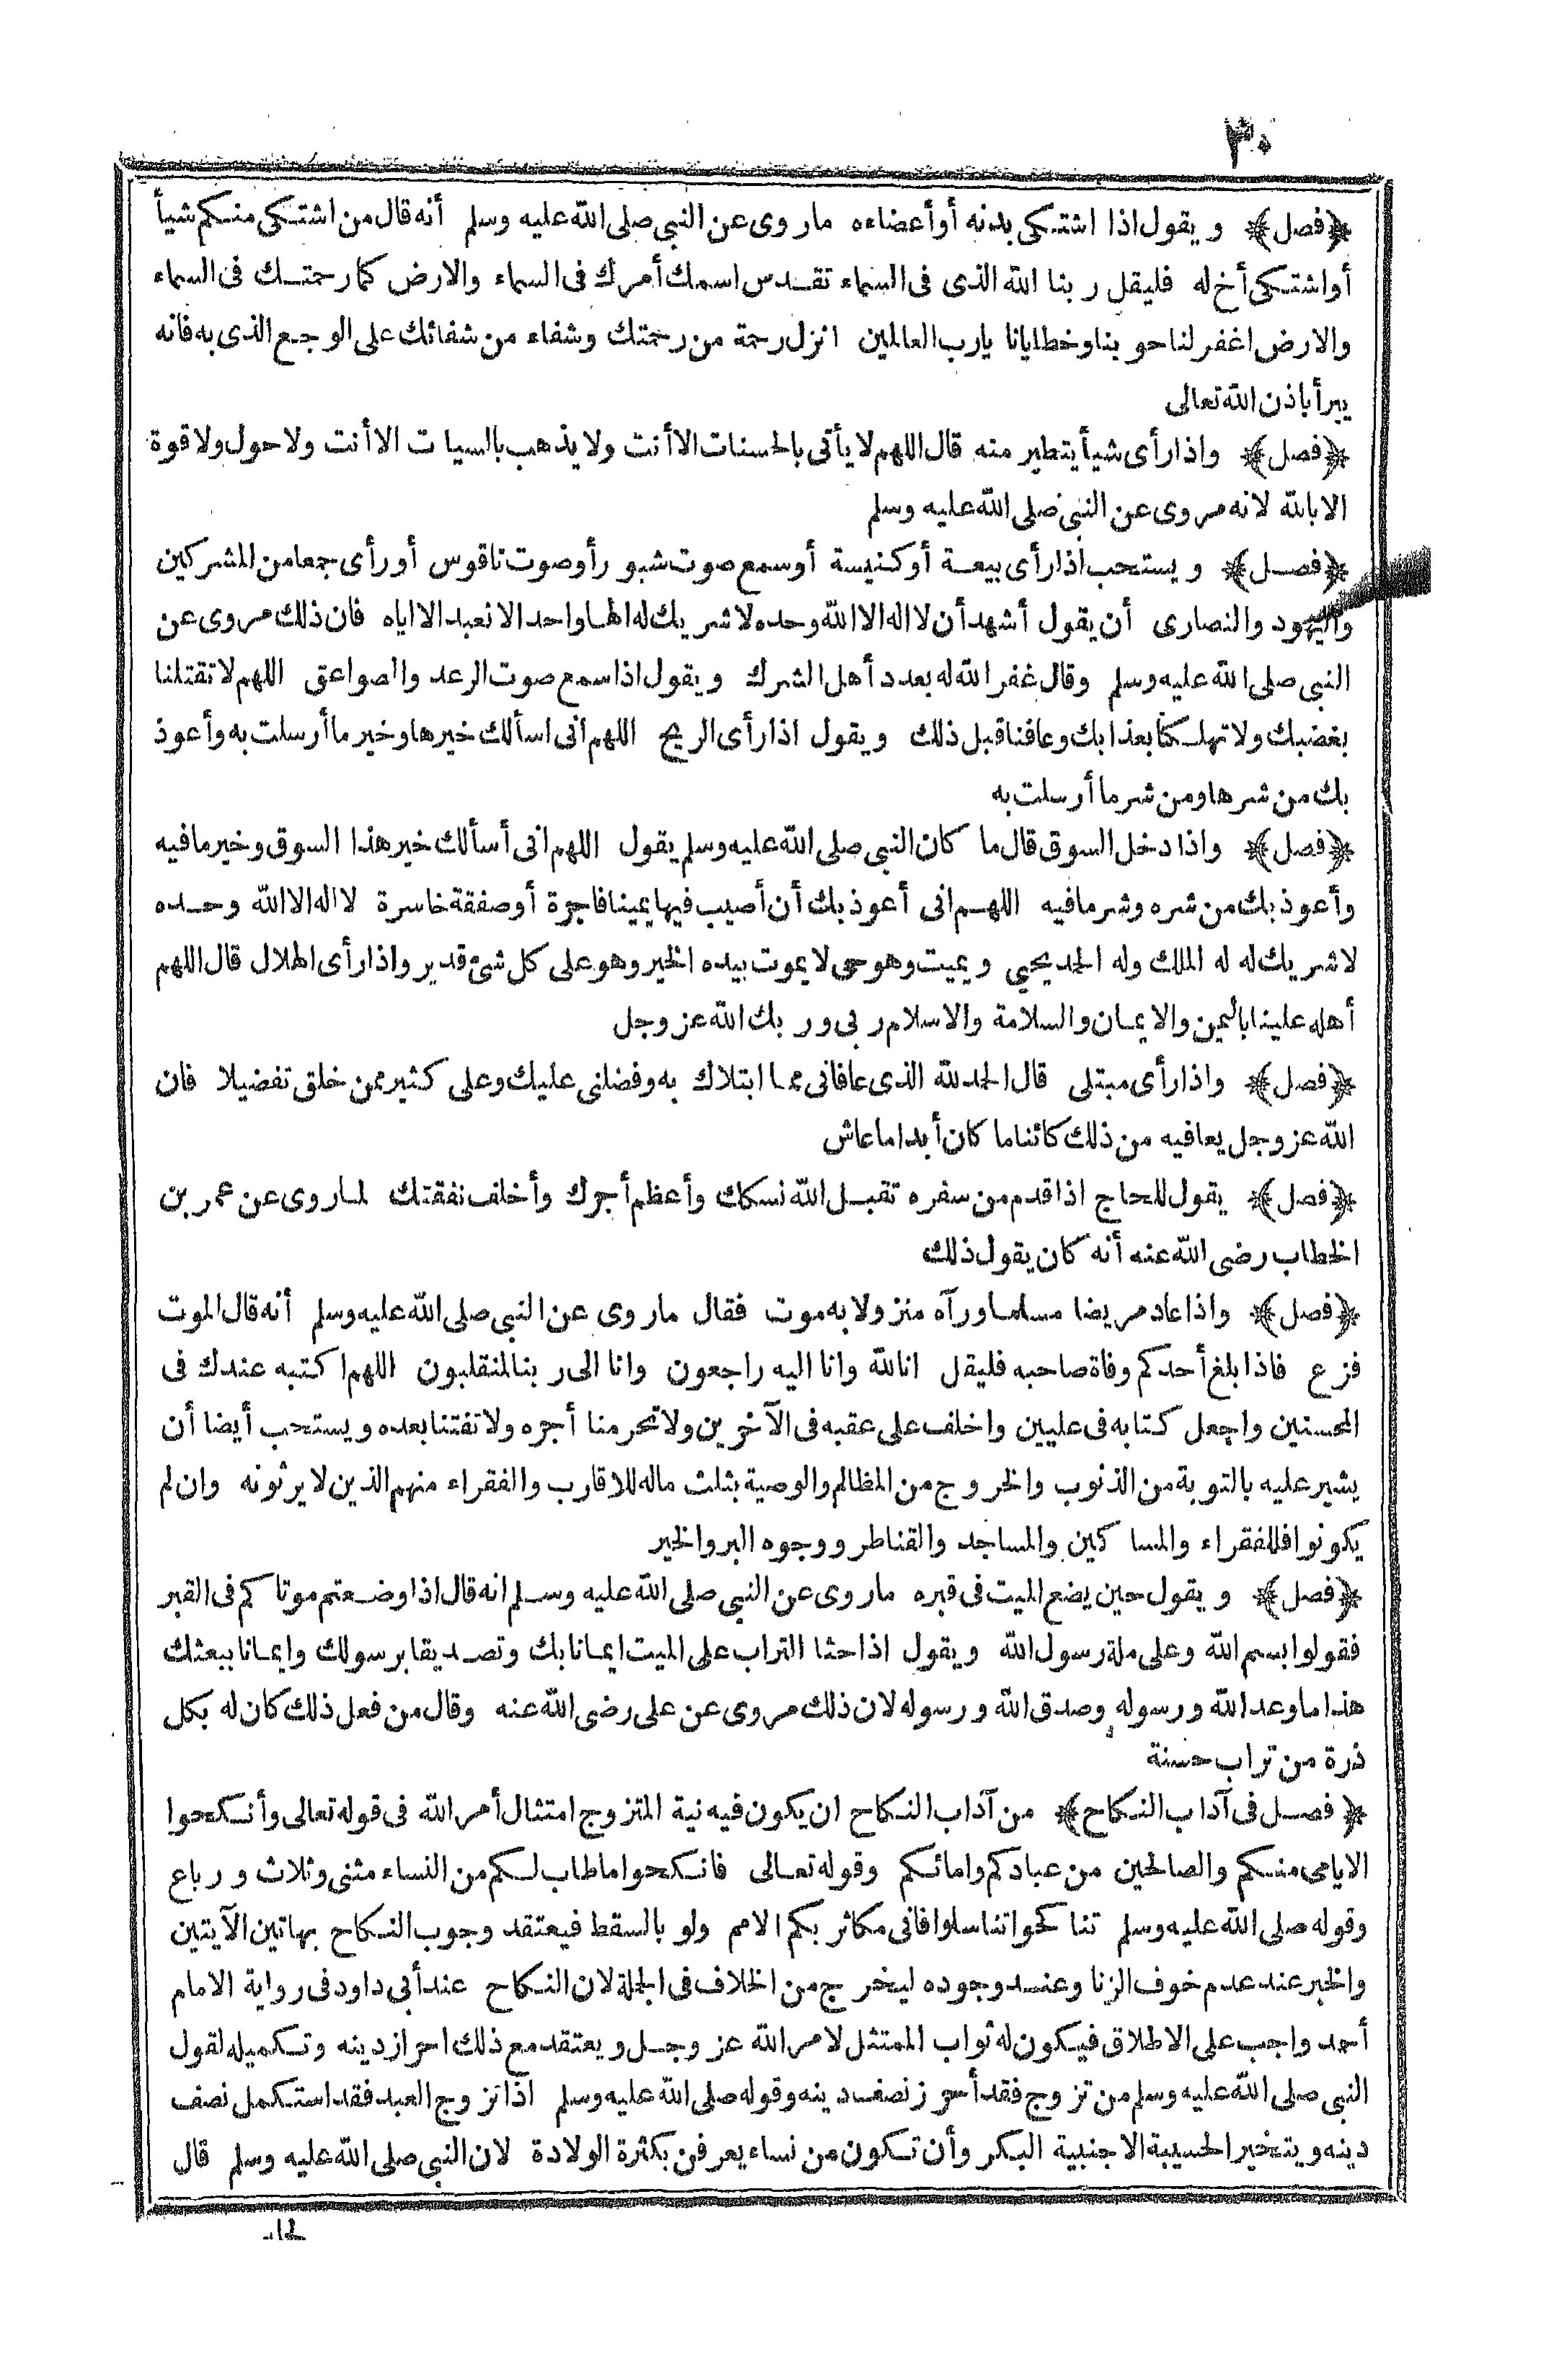 ٣٠
﴿فصل﴾ ويقول اذا اشتكى بدنه أو أعضاءه ماروى عن النبي صلى الله عليه وسلم أنه قال من اشتكى منكم شيأ
أو اشتكى أخ له فليقل ربنا الله الذى فى السماء تقدس اسمك أمرك فى السماء والارض كما رحمتك فى السماء
والارض اغفر لنا حوبنا وخطايانا يارب العالمين انزل رحمة من رحمتك وشفاء من شفائك على الوجع الذى به فانه
يبرأ باذن الله تعالى
﴿فصل﴾ واذا رأى شيأ يتطير منه قال اللهم لا يأتى بالحسنات الا أنت ولا يذهب بالسيات الا أنت ولا حول ولا قوة
الا بالله لانه مروى عن النبى صلى الله عليه وسلم
﴿فصل﴾ ويستحب اذا رأى بيعة أو كنيسة أو سمع صوت شبور أو صوت ناقوس أو رأى جمعا من المشركين
واليهود والنصارى أن يقول أشهد أن لا اله الا الله وحده لا شريك له الها واحد الا نعبد الا اياه فان ذلك مروى عن
النبى صلى الله عليه وسلم وقال غفر الله له بعدد أهل الشرك ويقول اذا سمع صوت الرعد والصواعق اللهم لا تقتلنا
بغضبك ولا تهلكنا بعذابك وعافنا قبل ذلك ويقول اذا رأى الريح اللهم انى اسألك خيرها وخير ما أرسلت به وأعوذ
بك من شرها ومن شر ما أرسلت به
﴿فصل﴾ واذا دخل السوق قال ما كان النبى صلى الله عليه وسلم يقول اللهم انى أسألك خير هذا السوق وخير ما فيه
وأعوذ بك من شره وشر ما فيه اللهم انى أعوذ بك أن أصيب فيها يمينا فاجرة أو صفقة خاسرة لا اله الا الله وحده
لا شريك له له الملك وله الحمد يحيي ويميت وهو حى لا يموت بيده الخير وهو على كل شئ قدير واذا رأى الهلال قال اللهم
أهله علينا باليمن والايمان والسلامة والاسلام ربى وربك الله عز وجل
﴿فصل﴾ واذا رأى مبتلى قال الحمد لله الذى عافانى مما ابتلاك به وفضلنى عليك وعلى كثير ممن خلق تفضيلا فان
الله عز وجل يعافيه من ذلك كائنا ما كان أبدا ما عاش
﴿فصل﴾ يقول للحاج اذا قدم من سفره تقبل الله نسكك وأعظم أجرك وأخلف نفقتك لما روى عن عمر بن
الخطاب رضى الله عنه أنه كان يقول ذلك
﴿فصل﴾ واذا عاد مريضا مسلما ورآه منزولا به موت فقال ماروى عن النبى صلى الله عليه وسلم أنه قال الموت
فزع فاذا بلغ أحدكم وفاة صاحبه فليقل انا لله وانا اليه راجعون وانا الى ربنا لمنقلبون اللهم اكتبه عندك فى
المحسنين واجعل كتابه فى عليين واخلف على عقبه فى الآخرين ولا تحرمنا أجره ولا تفتنا بعده ويستحب أيضا أن
يشير عليه بالتوبة من الذنوب والخروج من المظالم والوصية بثلث ماله للاقارب والفقراء منهم الذين لا يرثونه وان لم
يكونوا فللفقراء والمساكين والمساجد والقناطر ووجوه البر والخير
﴿فصل﴾ ويقول حين يضع الميت فى قبره ماروى عن النبى صلى الله عليه وسلم انه قال اذا وضعتم موتاكم فى القبر
فقولوا بسم الله وعلى ملة رسول الله ويقول اذا حثا التراب على الميت ايمانا بك وتصديقا برسولك وايمانا ببعثك
هذا ما وعد الله ورسوله وصدق الله ورسوله لان ذلك مروى عن على رضى الله عنه وقال من فعل ذلك كان له بكل
ذرة من تراب حسنة
﴿فصل فى آداب النكاح﴾ من آداب النكاح ان يكون فيه نية المتزوج امتثال أمر الله فى قوله تعالى وأنكحوا
الايامى منكم والصالحين من عبادكم وامائكم وقوله تعالى فانكحوا ما طاب لكم من النساء مثنى وثلاث ورباع
وقوله صلى الله عليه وسلم تناكحوا تناسلوا فانى مكاثر بكم الامم ولو بالسقط فيعتقد وجوب النكاح بهاتين الآيتين
والخبر عند عدم خوف الزنا وعند وجوده ليخرج من الخلاف فى الجملة لان النكاح عند أبى داود فى رواية الامام
أحمد واجب على الاطلاق فيكون له ثواب الممتثل لامر الله عز وجل ويعتقد مع ذلك احراز دينه وتكميله لقول
النبى صلى الله عليه وسلم من تزوج فقد أحرز نصف دينه وقوله صلى الله عليه وسلم اذا تزوج العبد فقد استكمل نصف
دينه ويتخير الحسيبة الاجنبية البكر وأن تكون من نساء يعرفن بكثرة الولادة لان النبى صلى الله عليه وسلم قال